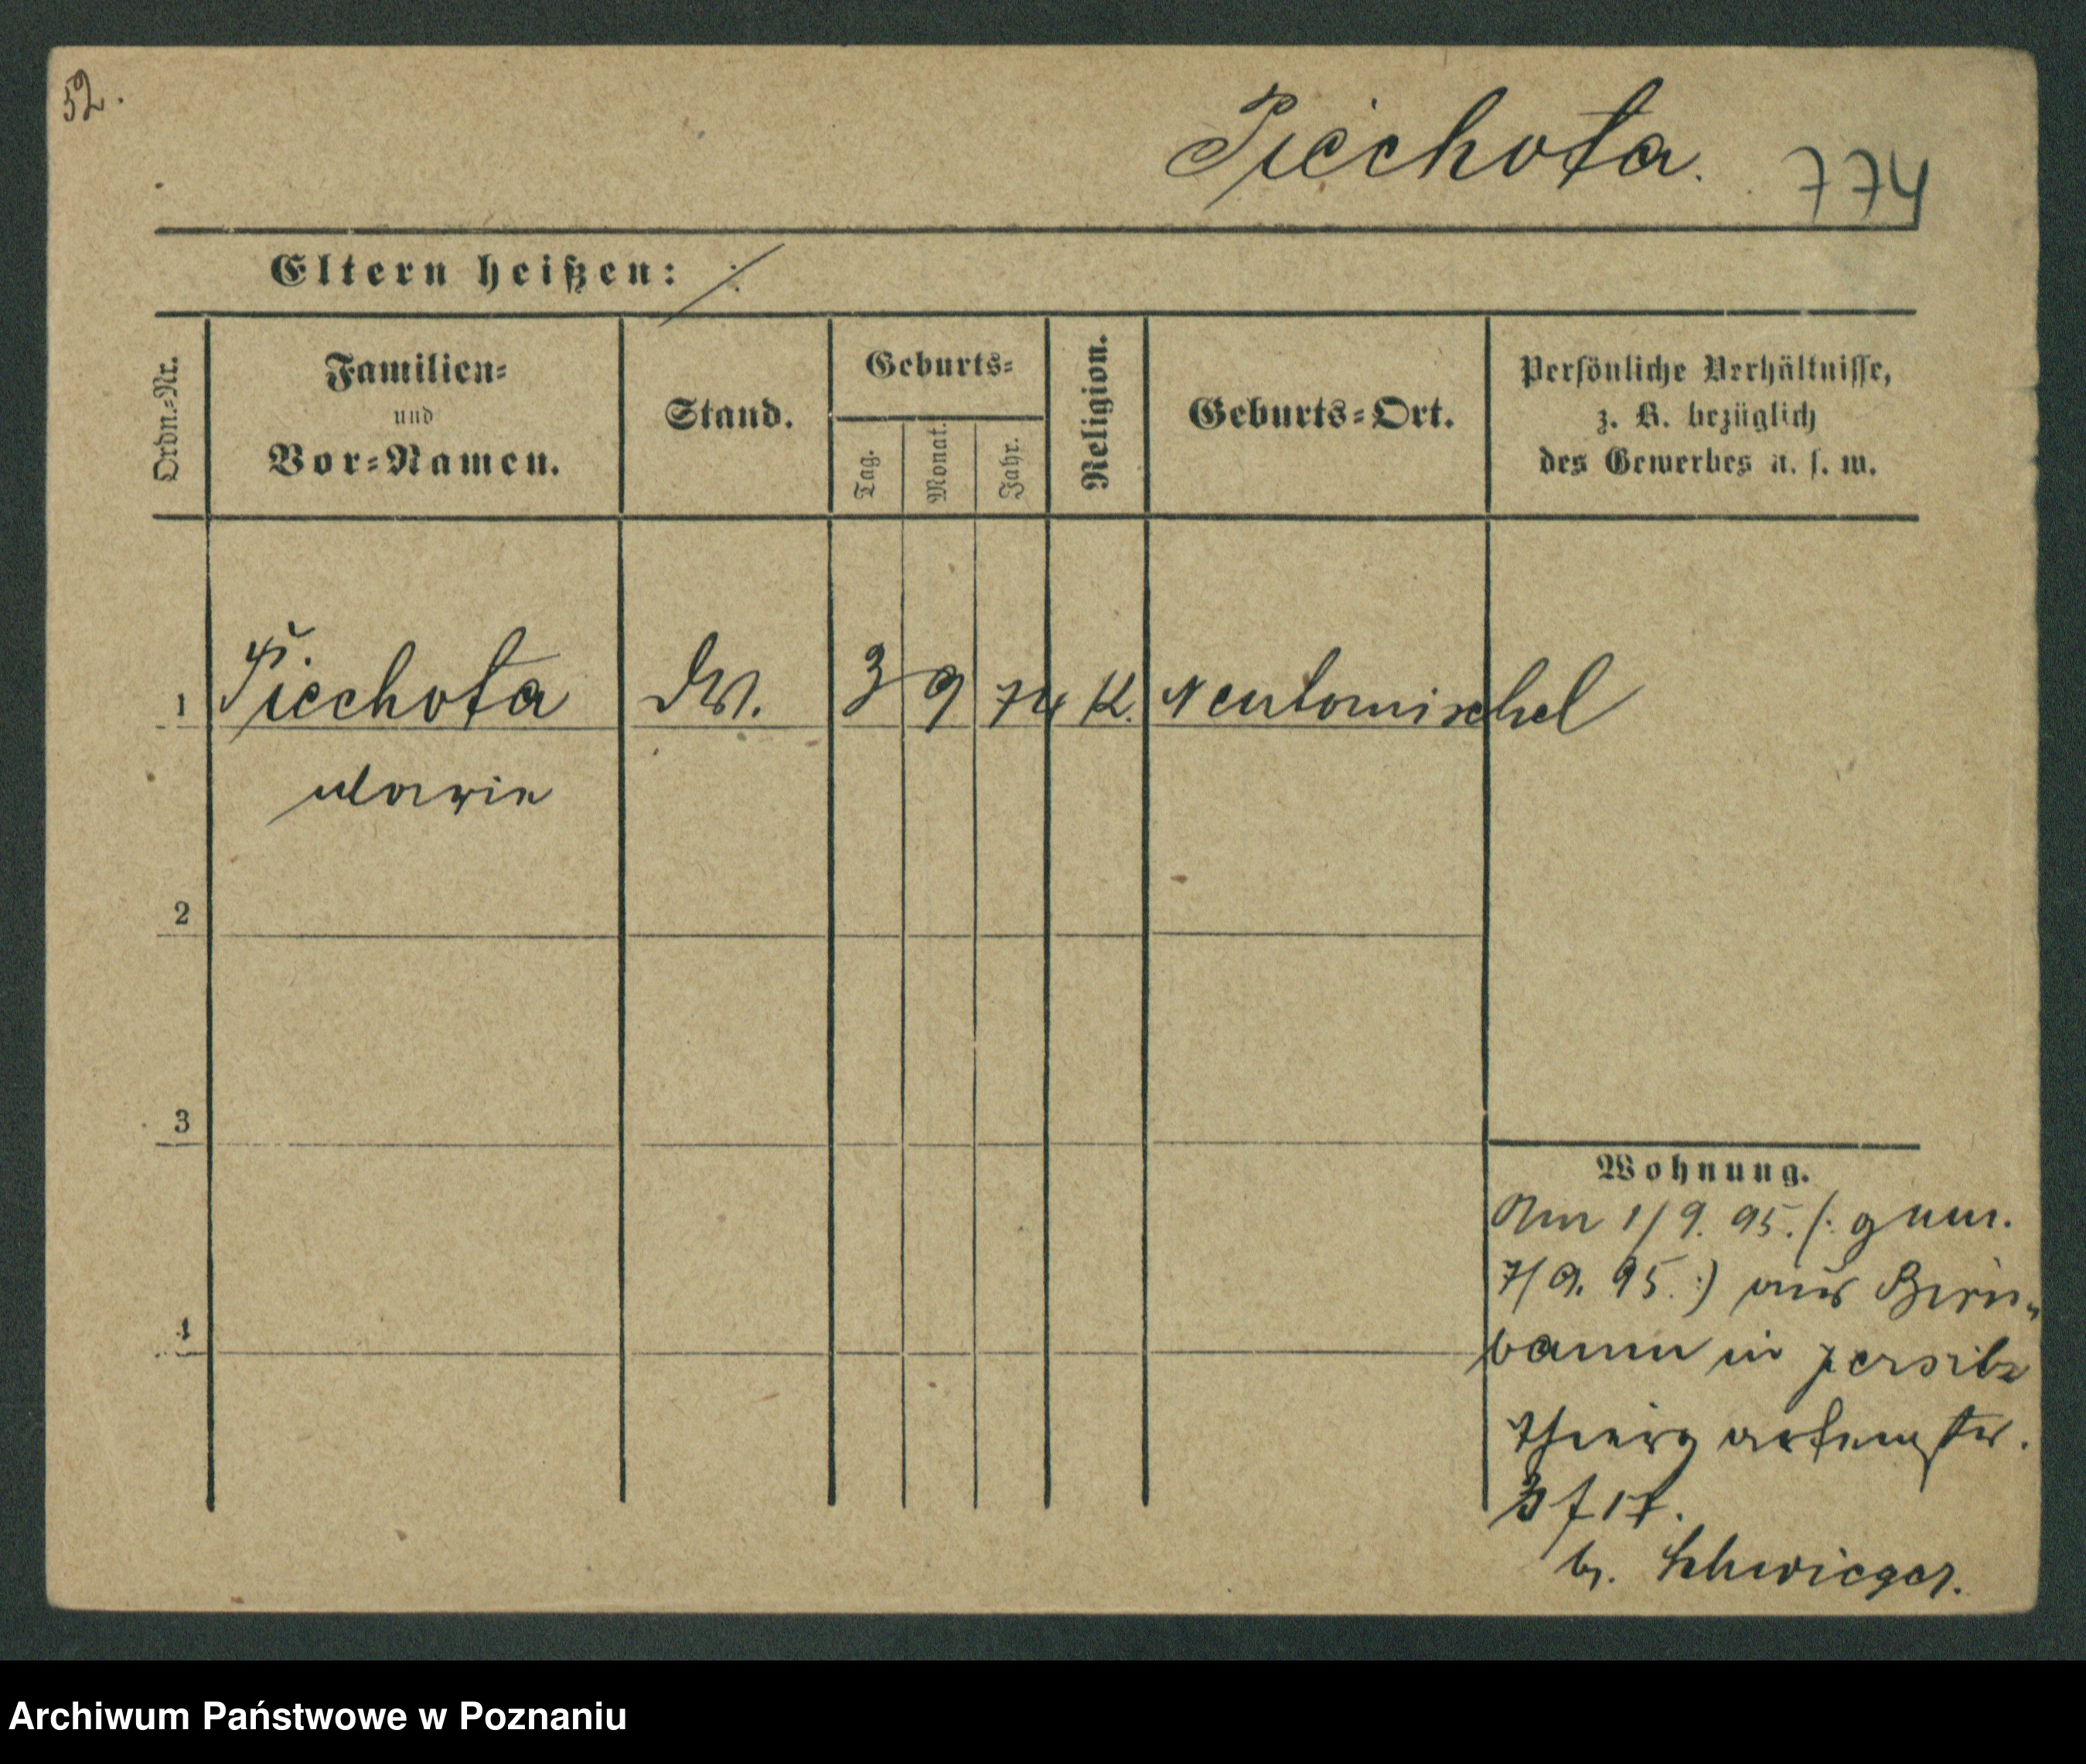 52.
Piechota. 774
Eltern heißen: ./.
Ordn.=Nr.
Familien=
und
Vor=Namen.
Stand.
Geburts=
Tag.
Monat.
Jahr.
Religion.
Geburts=Ort.
Persönliche Verhältnisse,
z. B. bezüglich
des Gewerbes u. s. w.
1 Piechota 3 9 74 K. Neutomischel
Marie
2
3
4
Wohnung.
Am 1/9. 95. (: gem.
7/9. 95.:) aus Birn-
baum in Jersitz
Thiergartenstr.
b. Schwieger.
Archiwum Państwowe w Poznaniu